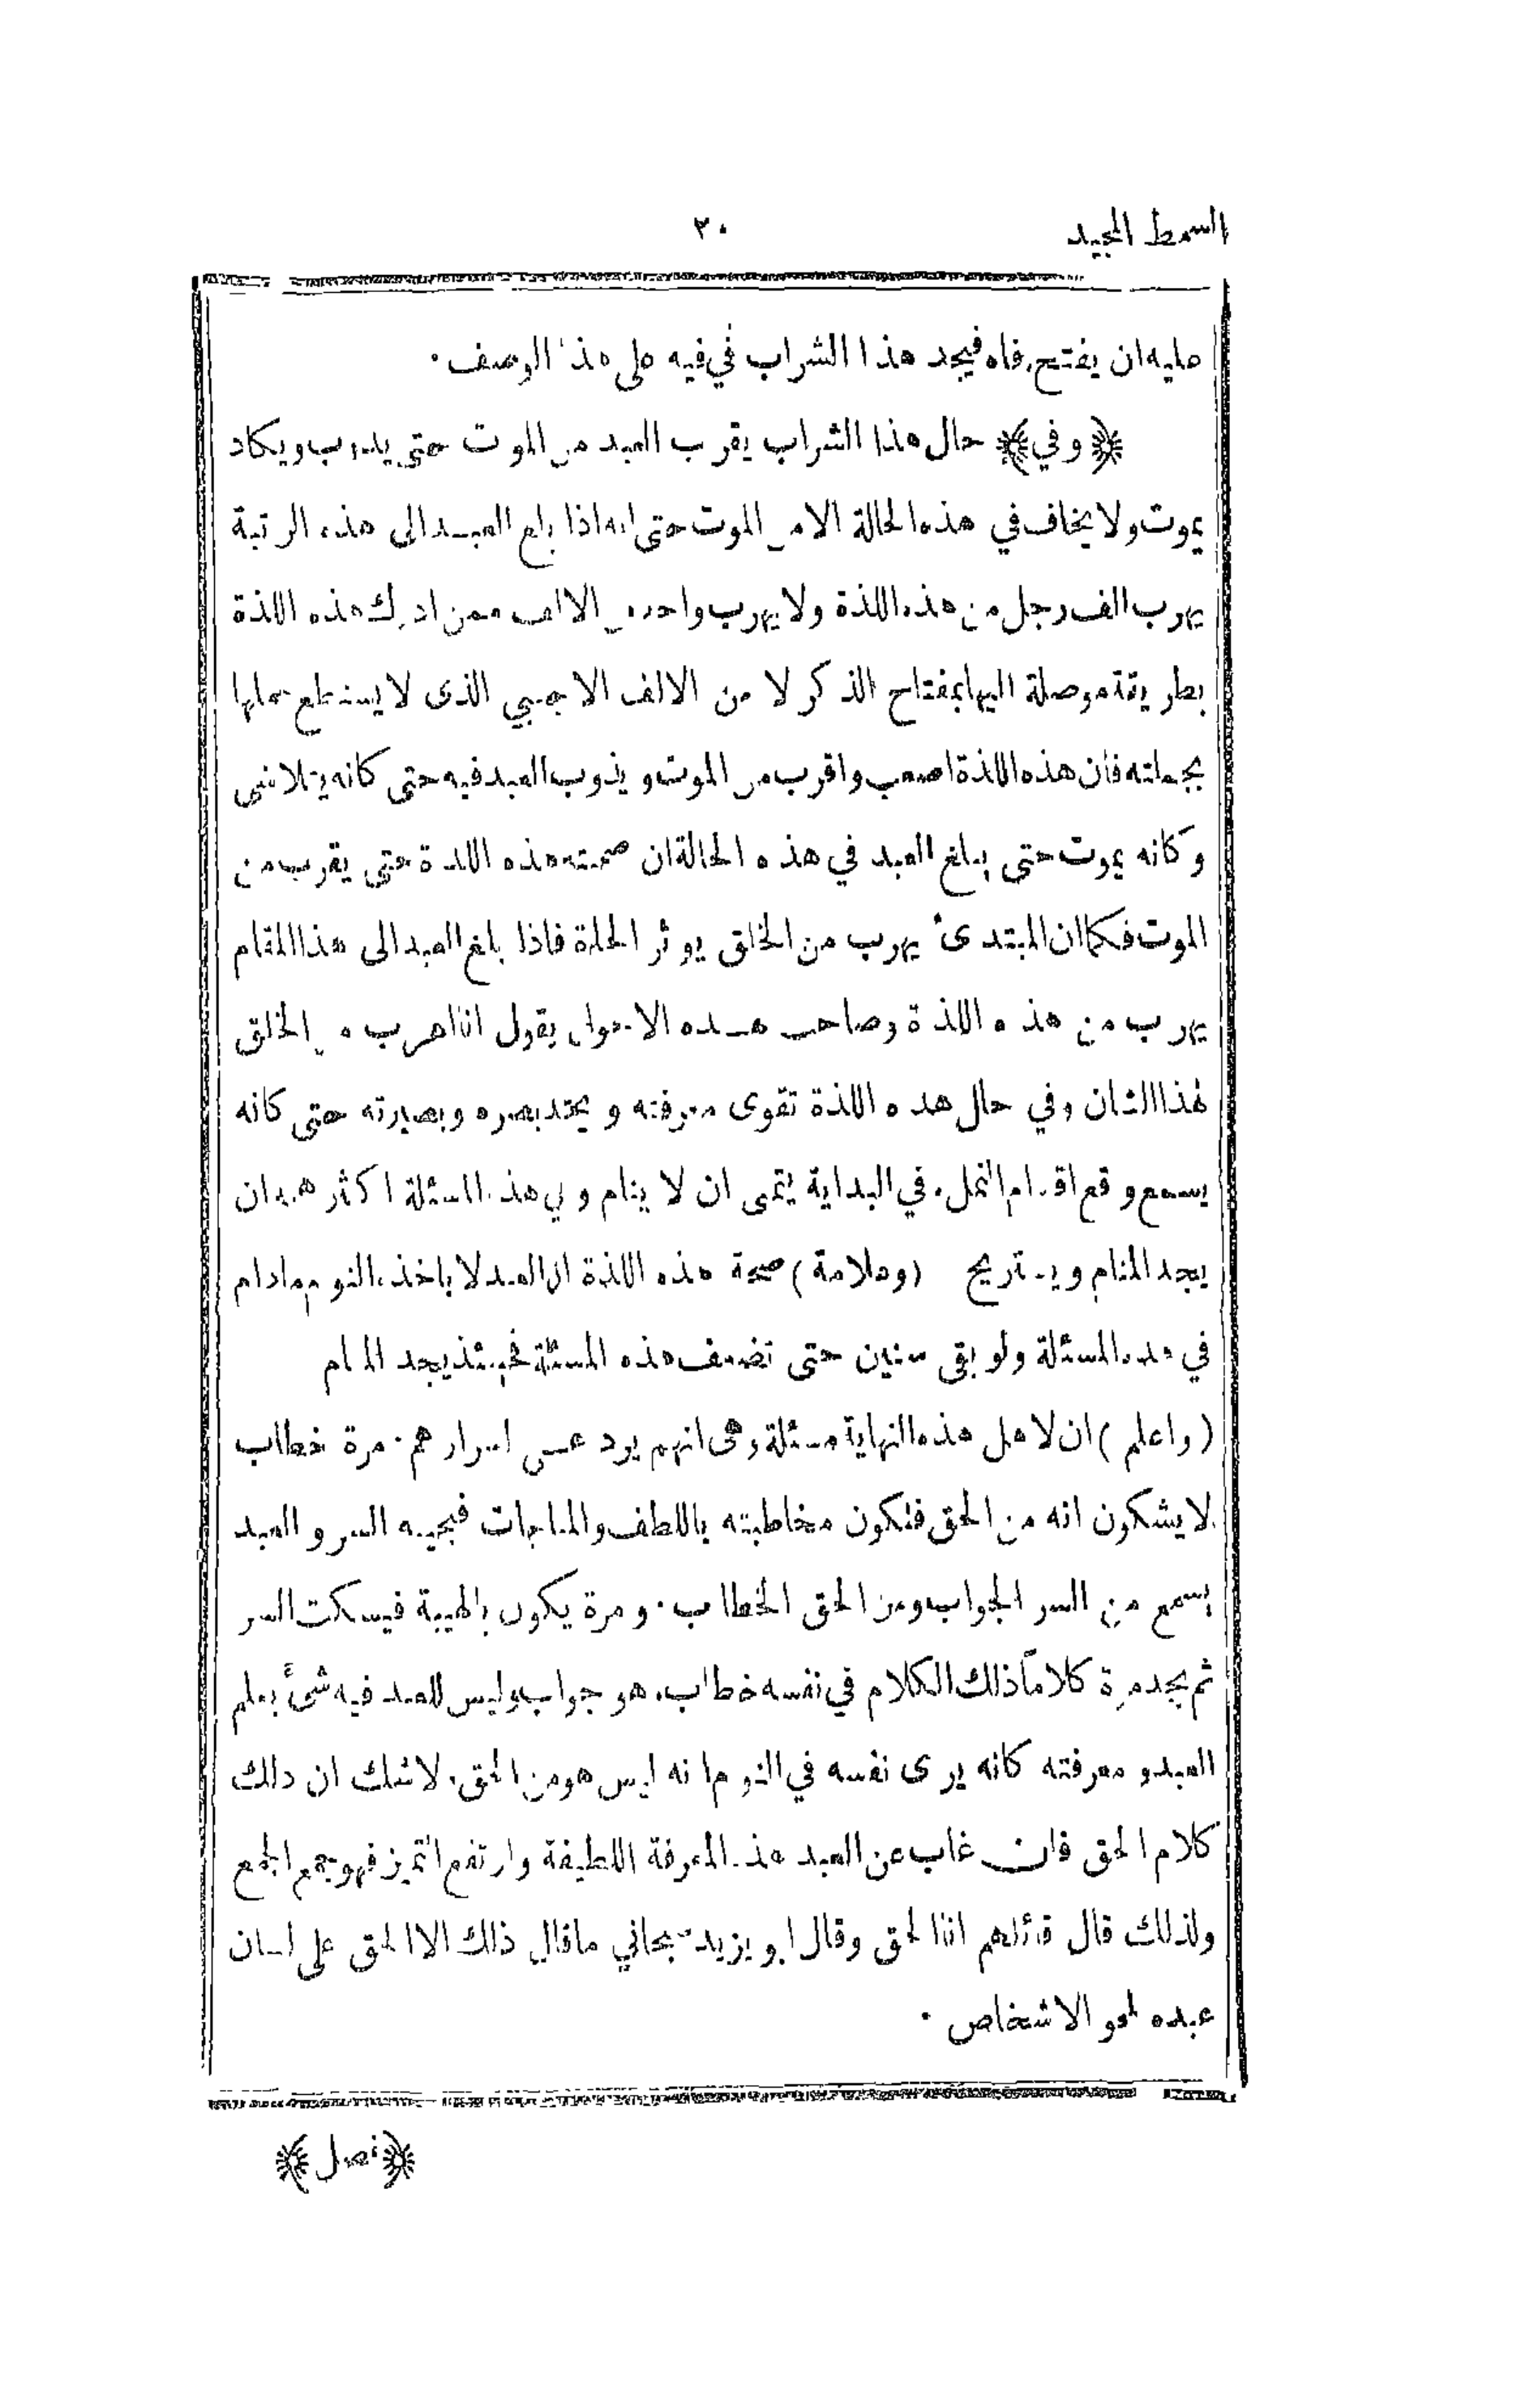 السمط المجيد
٣٠
عليه ان يفتح فاه فيجد هذا الشراب في فيه على هذا الوصف ·
﴿ وفي ﴾ حال هذا الشراب يقرب العبد من الموت حتى يذوب ويكاد
يموت ولا يخاف في هذه الحالة الا من الموت حتى انه اذا بلغ العبد الى هذه الرتبة
يهرب الف رجل من هذه اللذة ولا يهرب واحد من الالف ممن ادرك هذه اللذة
بطريقة موصلة اليها بمفتاح الذكر لا من الالف الاجنبي الذى لا يستطع حملها
بجملته فان هذه اللذة اصعب واقرب من الموت و يذوب العبد فيه حتى كانه يتلاشى
وكانه يموت حتى يبلغ العبد في هذه الحالة ان صحبته هذه اللذة حتى يقرب من
الموت فكما ان المبتدئ يهرب من الخلق يوثر الخلوة فاذا بلغ العبد الى هذا المقام
يهرب من هذه اللذة وصاحب هذه الاحوال يقول انا اهرب من الخلق
لهذا الشان وفي حال هذه اللذة تقوى معرفته و يحتد بصره وبصيرته حتى كانه
يسمع وقع اقدام النمل في البداية يتمنى ان لا ينام وفي هذه المسئلة اكثر همه ان
يجد المنام ويستريح (وعلامة) صحة هذه اللذة ان العبد لا ياخذه النوم مادام
في هذه المسئلة ولو بقى سنين حتى تضعف هذه المسئلة فحينئذ يجد المنام
(واعلم) ان لاهل هذه النهاية مسئلة وهى انهم يرد على اسرارهم · مرة خطاب
لا يشكون انه من الحق فتكون مخاطبته باللطف والمناجات فيجيبه السر والعبد
يسمع من السر الجواب ومن الحق الخطاب · ومرة يكون بالهيبة فيسكت السر
ثم يجد مرة كلاماً ذلك الكلام في نفسه خطاب هو جواب وليس للعبد فيه شئ بعلم
العبد و معرفته كانه يرى نفسه في النوم انه ليس هو من الحق لا شك ان ذلك
كلام الحق فان غاب عن العبد هذه المعرفة اللطيفة وارتفع التميز فهو جمع الجمع
ولذلك قال قائلهم انا الحق وقال ابو يزيد سبحاني ما قال ذلك الا الحق على لسان
عبده لمحو الاشخاص ·
﴿ فصل ﴾